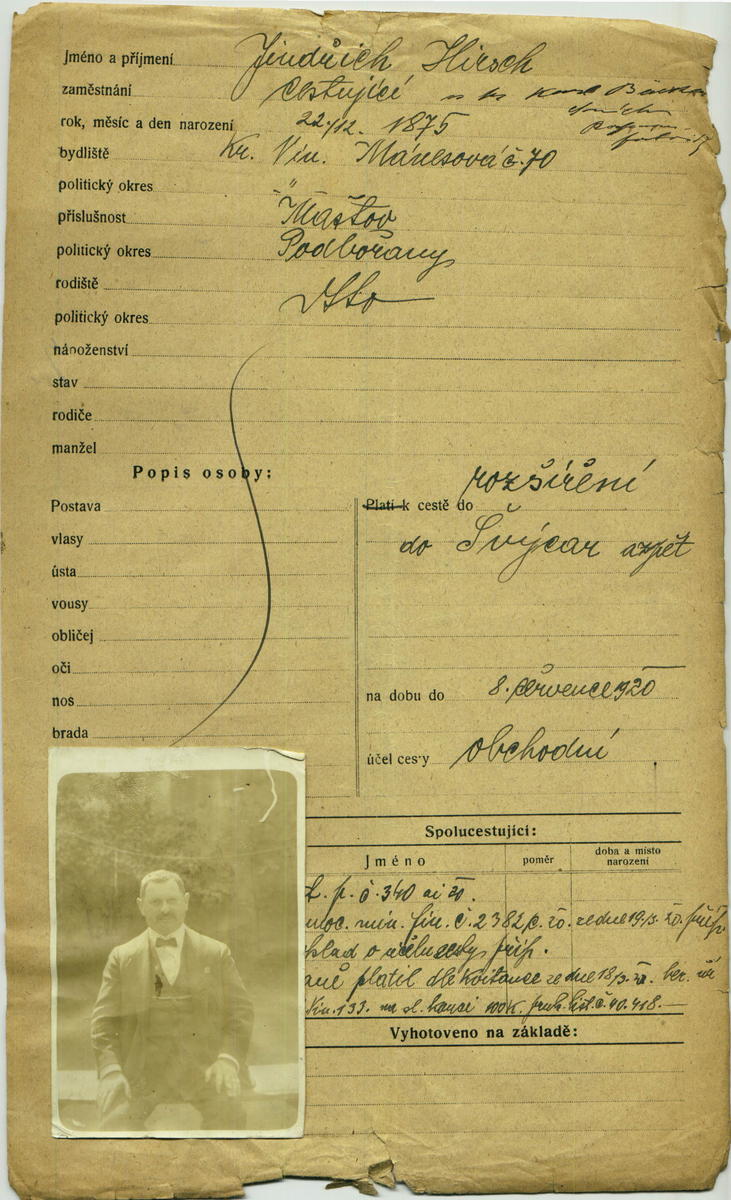 Jméno a příjmení Jindřich Hirsch
zaměstnání cestující
rok, měsíc a den narození 22./12. 1875
bydliště Kr. Vin. Mánesová č. 70
politický okres "
příslušnost Maštov
politický okres Podbořany
rodiště dtto
politický okres
náboženství
stav
rodiče
manžel
Popis osoby:
Postava
vlasy
ústa
vousy
obličej
oči
nos
brada
rozšíření
Platí k cestě do
do Švýcar a zpět
na dobu do 8. července 1920
účel cesty obchodní
Spolucestující:
Jméno poměr doba a místo narození
p. č. 340 ai 20.
min. fin. č. 2382/c. 20. ze dne 19/3. 20. příp.
klad o účelu cesty příp.
platil dle kvitance ze dne 18/3.
133. na sl. kauci 100K. č. 40.418.
Vyhotoveno na základě: